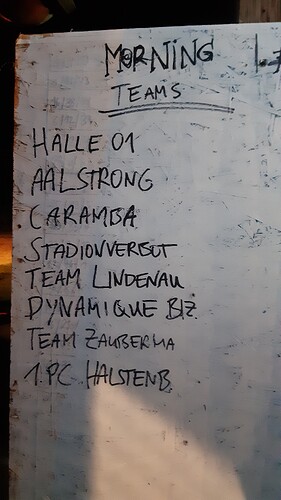 MORNING
TEAMS
HALLE 01
AALSTRONG
CARAMBA
STADIONVERBOT
TEAM LINDENAU
DYNAMIQUE BIZ
TEAM ZAUBERMA
1.PC HALSTENB.